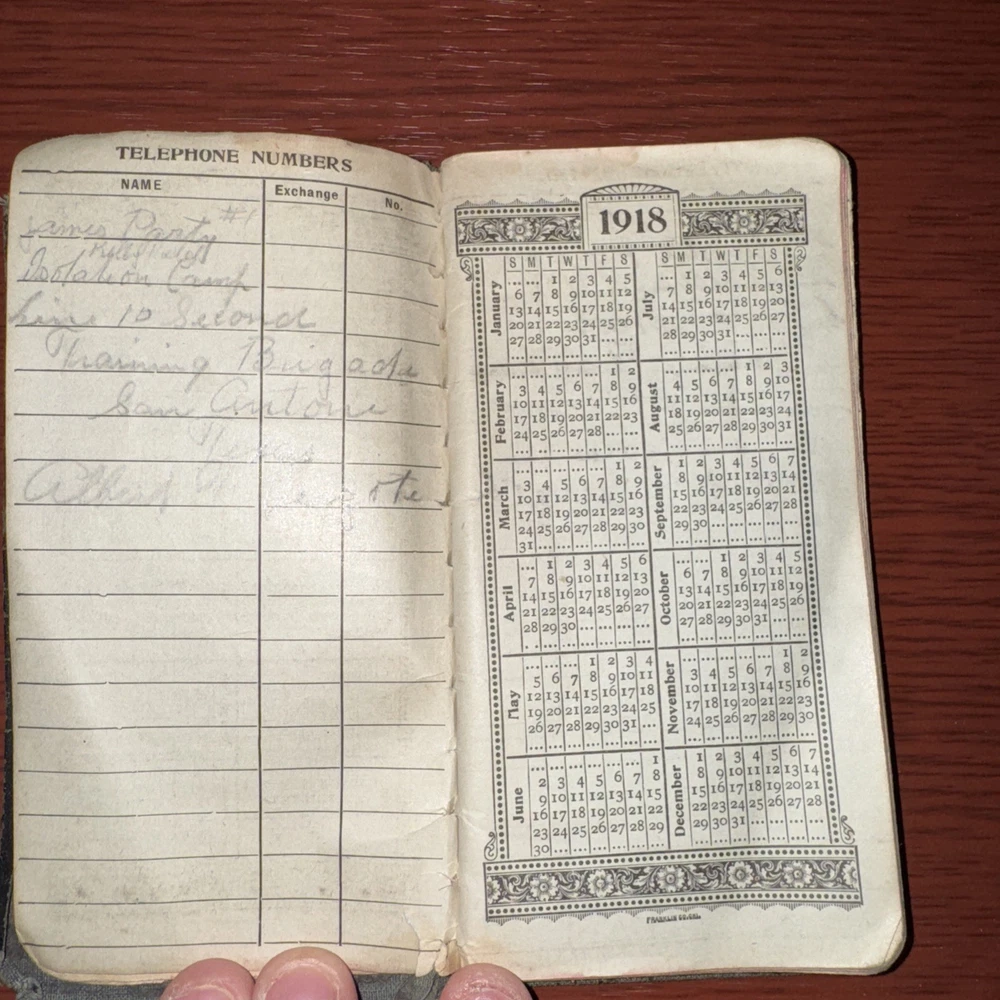 TELEPHONE NUMBERS
NAME Exchange No.
James Party #1
Isolation Camp
10 Second
Training Brigade
San Antone
Texas
1918
S M T W T F S
January
... ... 1 2 3 4 5
6 7 8 9 10 11 12
13 14 15 16 17 18 19
20 21 22 23 24 25 26
27 28 29 30 31 ... ...
... ... ... ... ... ... ...
February
... ... ... ... ... 1 2
3 4 5 6 7 8 9
10 11 12 13 14 15 16
17 18 19 20 21 22 23
24 25 26 27 28 ... ...
... ... ... ... ... ... ...
March
... ... ... ... ... 1 2
3 4 5 6 7 8 9
10 11 12 13 14 15 16
17 18 19 20 21 22 23
24 25 26 27 28 29 30
31 ... ... ... ... ... ...
April
... 1 2 3 4 5 6
7 8 9 10 11 12 13
14 15 16 17 18 19 20
21 22 23 24 25 26 27
28 29 30 ... ... ... ...
... ... ... ... ... ... ...
May
... ... ... 1 2 3 4
5 6 7 8 9 10 11
12 13 14 15 16 17 18
19 20 21 22 23 24 25
26 27 28 29 30 31 ...
... ... ... ... ... ... ...
June
... ... ... ... ... ... 1
2 3 4 5 6 7 8
9 10 11 12 13 14 15
16 17 18 19 20 21 22
23 24 25 26 27 28 29
30 ... ... ... ... ... ...
S M T W T F S
July
... 1 2 3 4 5 6
7 8 9 10 11 12 13
14 15 16 17 18 19 20
21 22 23 24 25 26 27
28 29 30 31 ... ... ...
... ... ... ... ... ... ...
August
... ... ... ... 1 2 3
4 5 6 7 8 9 10
11 12 13 14 15 16 17
18 19 20 21 22 23 24
25 26 27 28 29 30 31
... ... ... ... ... ... ...
September
1 2 3 4 5 6 7
8 9 10 11 12 13 14
15 16 17 18 19 20 21
22 23 24 25 26 27 28
29 30 ... ... ... ... ...
... ... ... ... ... ... ...
October
... ... 1 2 3 4 5
6 7 8 9 10 11 12
13 14 15 16 17 18 19
20 21 22 23 24 25 26
27 28 29 30 31 ... ...
... ... ... ... ... ... ...
November
... ... ... ... ... 1 2
3 4 5 6 7 8 9
10 11 12 13 14 15 16
17 18 19 20 21 22 23
24 25 26 27 28 29 30
... ... ... ... ... ... ...
December
1 2 3 4 5 6 7
8 9 10 11 12 13 14
15 16 17 18 19 20 21
22 23 24 25 26 27 28
29 30 31 ... ... ... ...
... ... ... ... ... ... ...
FRANKLIN CO. CHI.